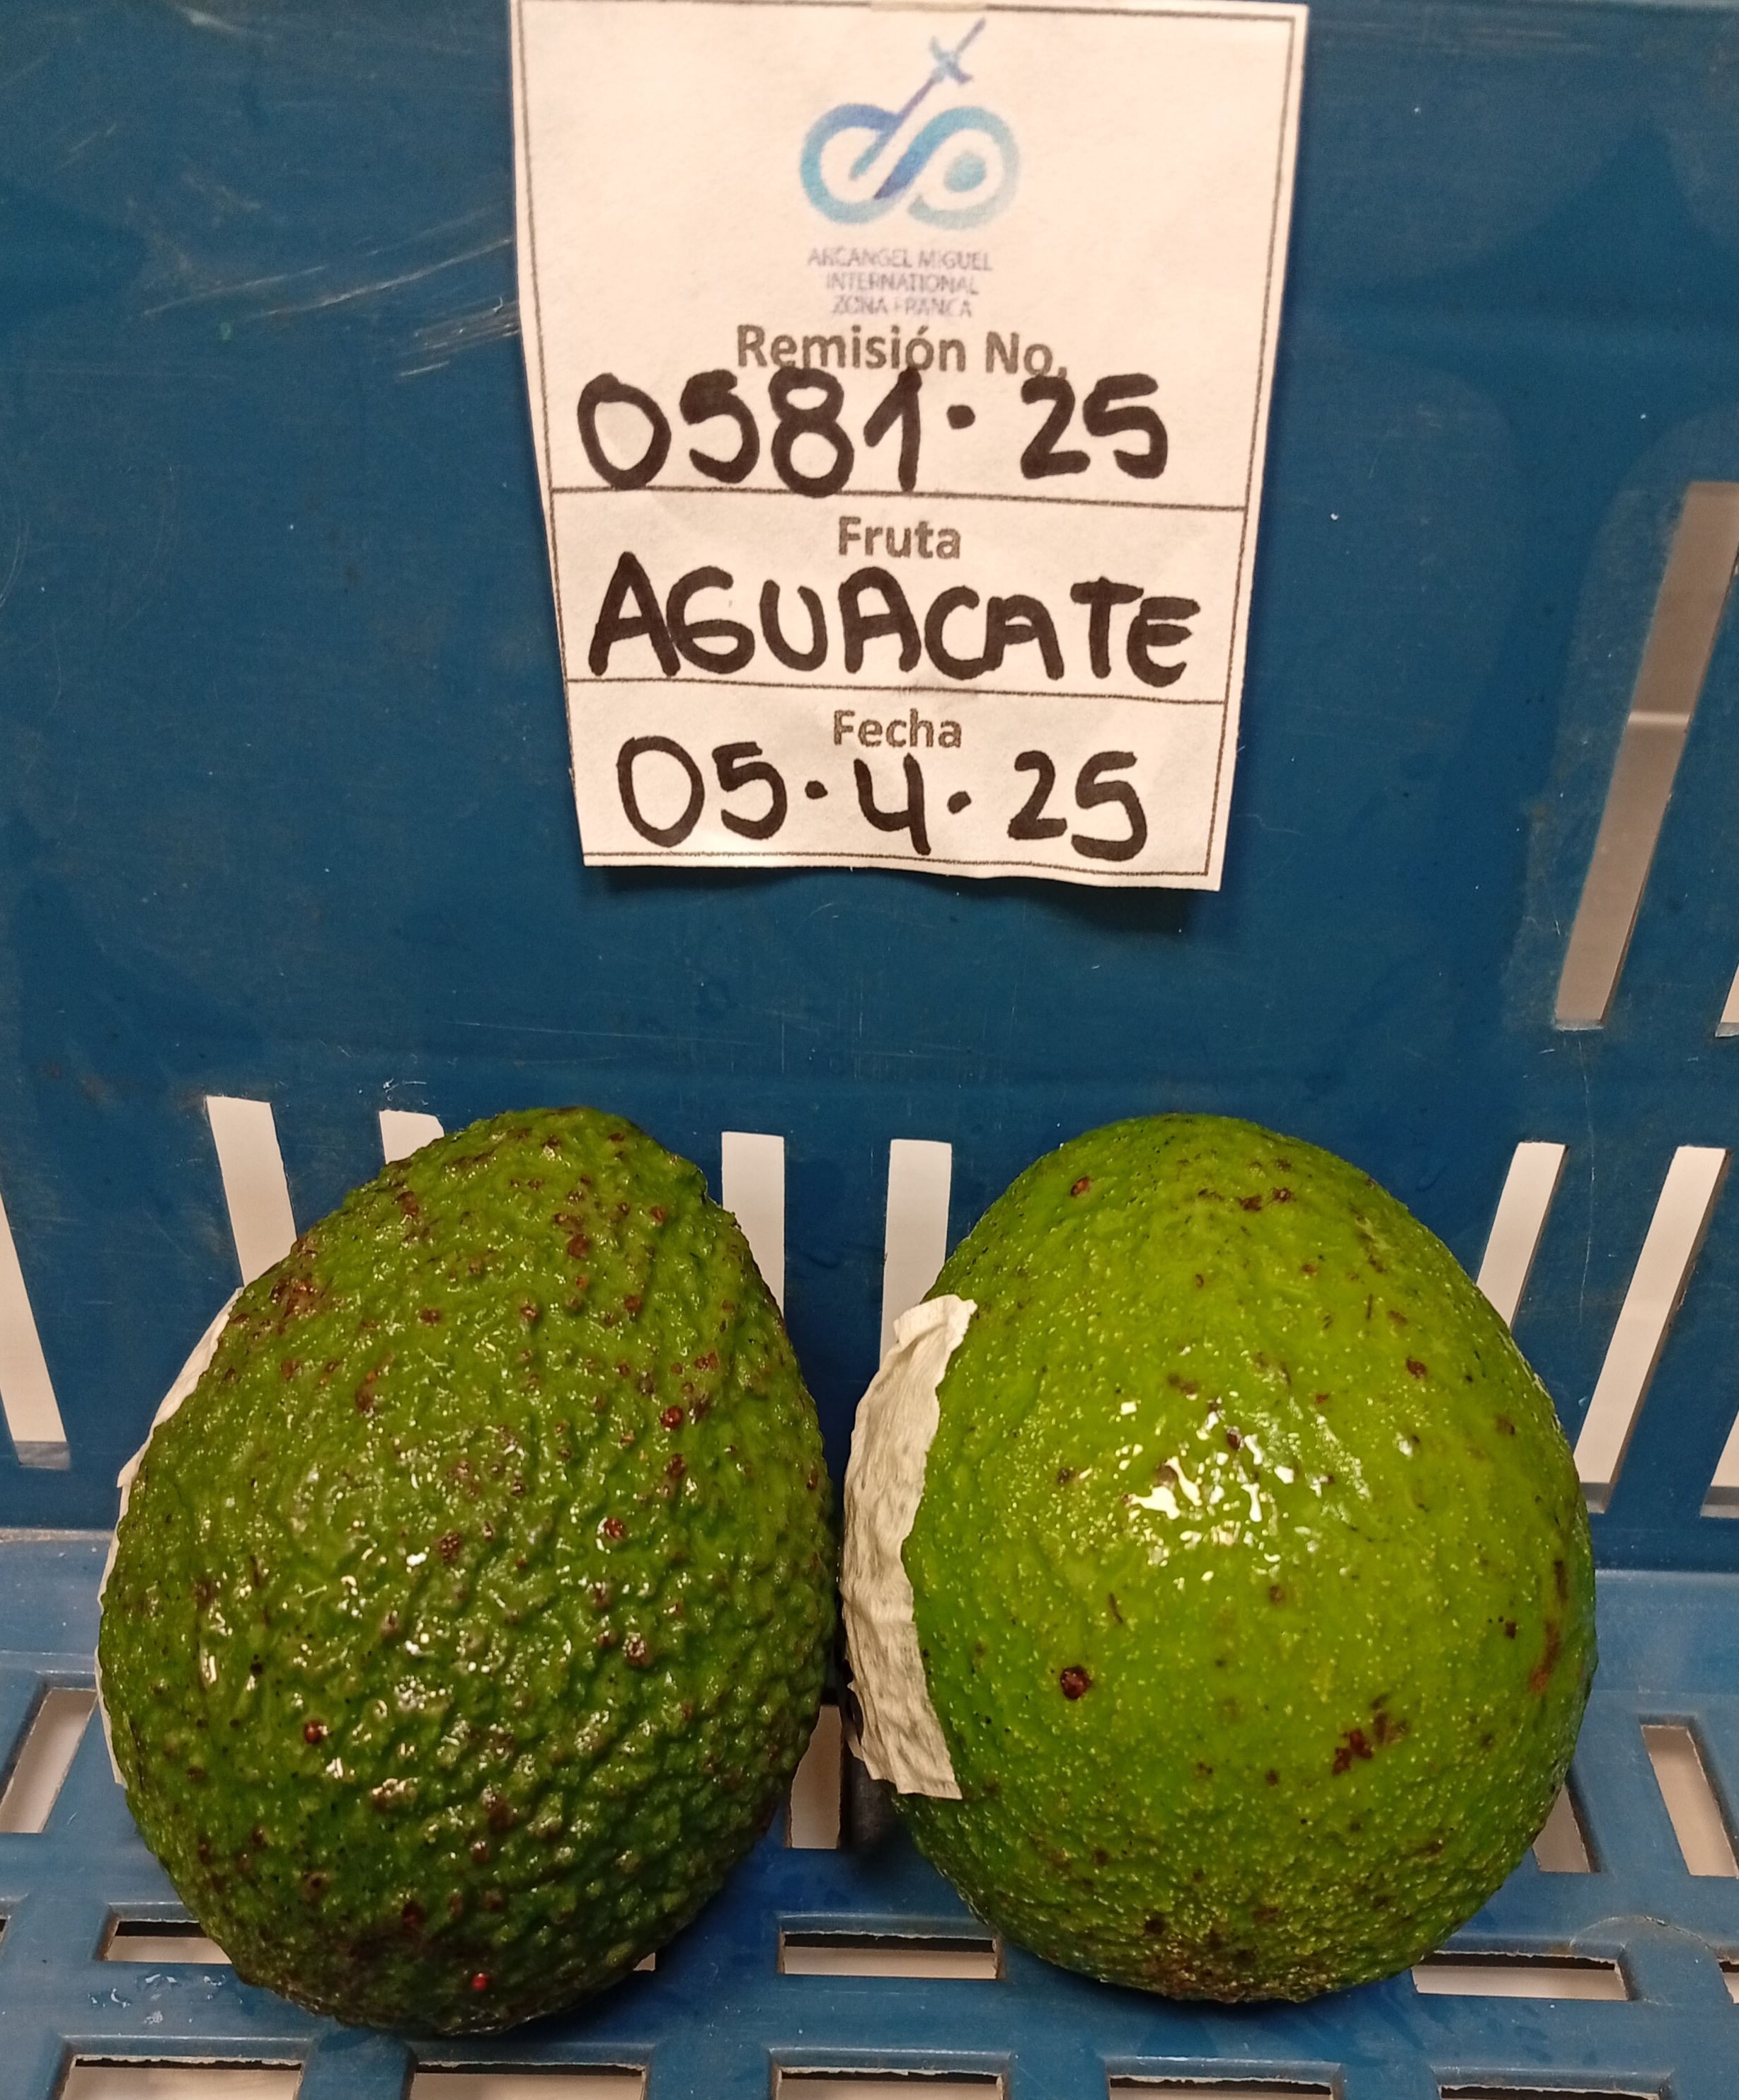 ARCANGEL MIGUEL
INTERNATIONAL
ZONA FRANCA
Remisión No.
0581·25
Fruta
AGUACATE
Fecha
05·4·25